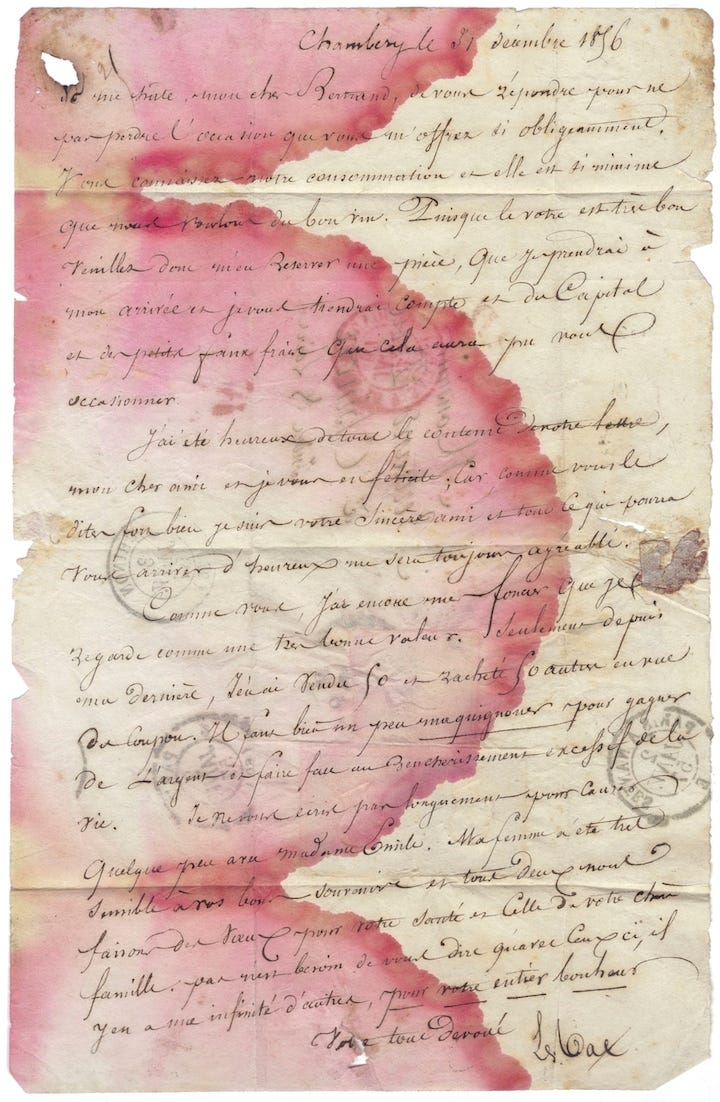 Chambery le 31 décembre 1856
Je me hâte, mon cher Bertrand, de vous répondre pour ne
pas perdre l'occasion que vous m'offrez si obligeamment.
Vous connaissez notre consommation et elle est si minime
que nous voulons du bon vin. Puisque le votre est très bon
Veuillez donc m'en réserver une pièce, que je prendrai à
mon arrivée et je vous tiendrai compte et du Capital
et des petits faux frais que cela aura pu vous
occasionner.
J'ai été heureux de tout le contenu de votre lettre,
mon cher ami et je vous en félicite. Car comme vous le
dites fort bien je suis votre sincère ami et tout ce qui pourra
vous arriver d'heureux me sera toujours agréable.
Comme vous, j'ai encore mes fonciers que je
regarde comme une très bonne valeur. Seulement depuis
ma dernière, j'en ai vendu 50 et racheté 50 autres en vue
du Coupon. Il faut bien un peu maquignoner pour gagner
de l'argent et faire face au renchérissement excessif de la
vie. Je ne vous écris pas longuement pour causer
quelque peu avec madame Emile. Ma femme a été très
sensible à vos bons souvenirs et tous deux nous
faisons des vœux pour votre santé et celle de votre chère
famille. pas n'est besoin de vous dire qu'avec ceux ci, il
y en a une infinité d'autres, pour votre entier bonheur
Votre tout dévoué